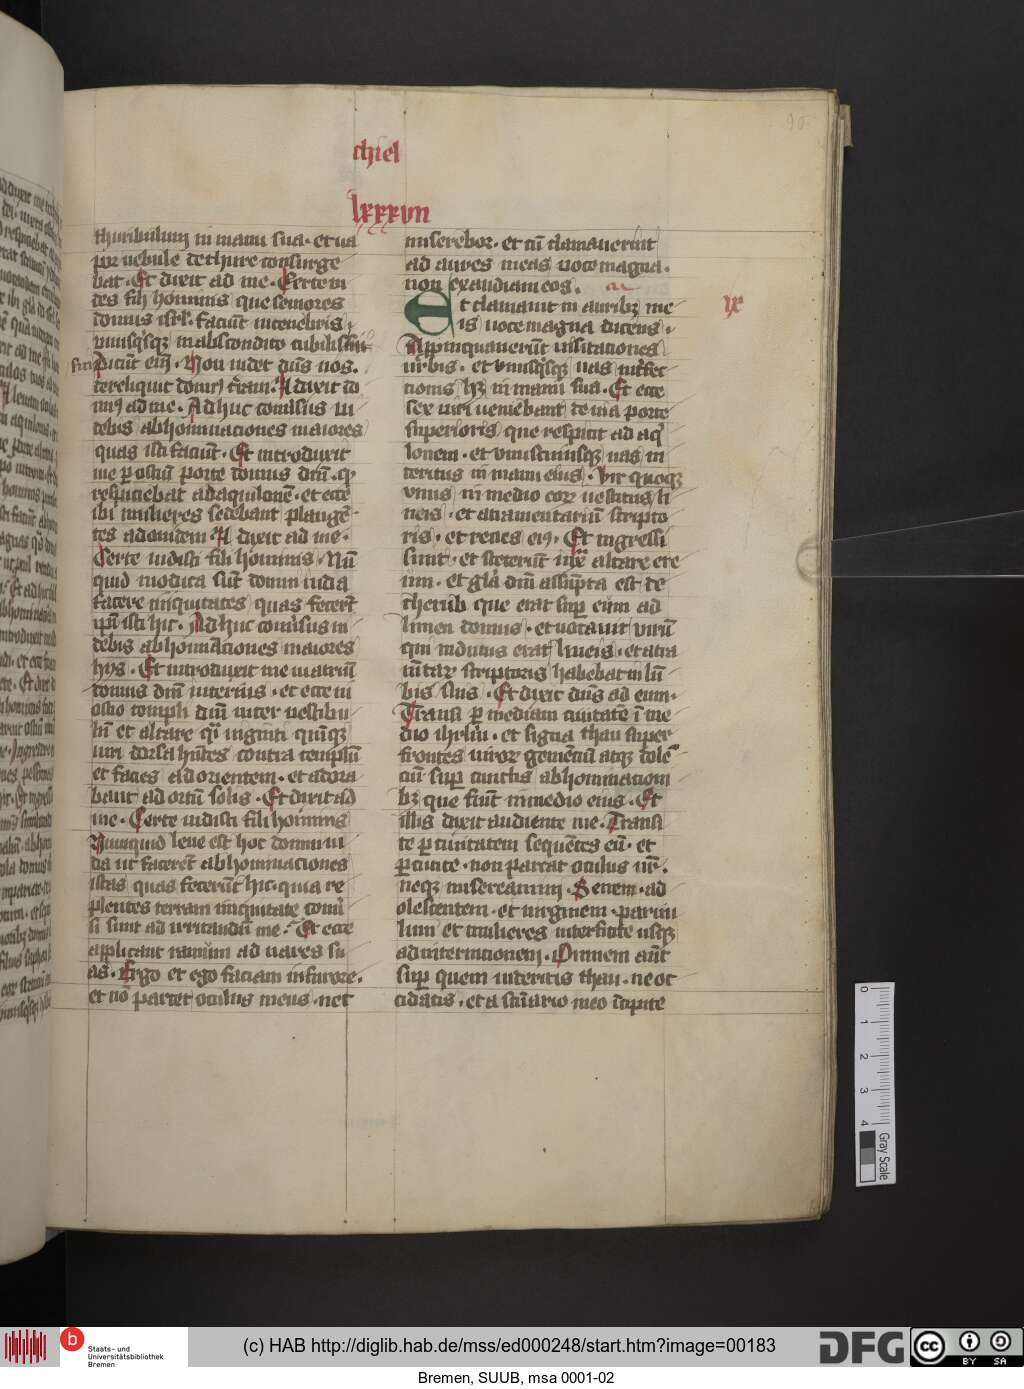 chiel
lxxxvii
thuribulum in manu sua · et va
por nebule de thure consurge
bat · Et dixit ad me · Certe vi
des fili hominis que seniores
domus isrl · faciūt in tenebris ·
unusqsq; in abscondito cubiliculi
Dicūt eīm · Non videt dūs nos ·
dereliquit domin9 terram · Et dixit do
min9 ad me · Adhuc conuersus vi
debis abhominaciones maiores
quas isti faciūt · Et introduxit
me p ostiū porte domus dm̄ · q
respiciebat ad aquilonē · et ecce
ibi mulieres sedebant plangē
tes adonidem · Et dixit ad me ·
Certe vidisti fili hominis · Nū
quid modica sūt domui iuda
facere iniquitates quas fecerūt
ipi isti hic · Adhuc conuersus vi
debis abhominaciones maiores
hys · Et introduxit me in atriū
domus dm̄ interius · et ecce in
ostio templi dm̄ inter vestibu
lū et altare qi viginti quīq;
viri dorsa hn̄tes contra templū
et facies ad orientem · et adora
bant ad ortū solis · Et dixit ad
me · Certe vidisti fili hominis
Nunquid leue est hoc domui iu
da ut facerēt abhominaciones
istas quas fecerūt hic · quia re
plentes terram iniquitate conu
si sunt ad irritandū me · Et ecce
applicant ramum ad nares su
as · Ergo et ego faciam in furore ·
et nō parcet oculus meus · nec
miserebor · et cū clamauerint
ad aures meas uoce magna ·
non exaudiam eos ·
Et clamauit in aurib; me
ix
is uoce magna dicens ·
Appinquauerūt uisitationes
urbis · et vnusqsq; uas interfec
tionis h; in manu sua · Et ecce
sex uiri ueniebant de uia porte
superioris que respicit ad aq
lonem · et vniuscuiusq; uas in
teritus in manu eius · Vir quoq;
vnus in medio eor uestitus li
neis · et atramentariū scripto
ris · et renes ei9 · Et ingressi
sunt · et steterūt iuxa altare ere
um · et gla dm̄ assūpta est de
cherub que erat sup eum ad
limen domus · et uocauit virū
qui indutus erat lineis · et atra
mētar scriptoris habebat in lū
bis suis · Et dixit dūs ad eum ·
Transi p mediam ciuitatē ī me
dio ihrlm · et signa thau super
frontes uiror gementiū atq; dole
ciū sup cunctis abhominacioni
b; que fiūt in medio eius · Et
illis dixit audiente me · Transi
te p ciuitatem sequētes eū · et
pcutite · non parcat oculus ur̄ ·
neq; misereamini · Senem · ad
olescentem · et uirginem · paruu
lum et mulieres interficite usq;
ad internicionem · Omnem aūt
sup quem uideritis thau · ne oc
cidatis · et a sc̄uario meo īcipite
(c) HAB http://diglib.hab.de/mss/ed000248/start.htm?image=00183
Staats- und
Universitätsbibliothek
Bremen
DFG
cc BY SA
Bremen, SUUB, msa 0001-02
0 1 2 3 4
Gray Scale